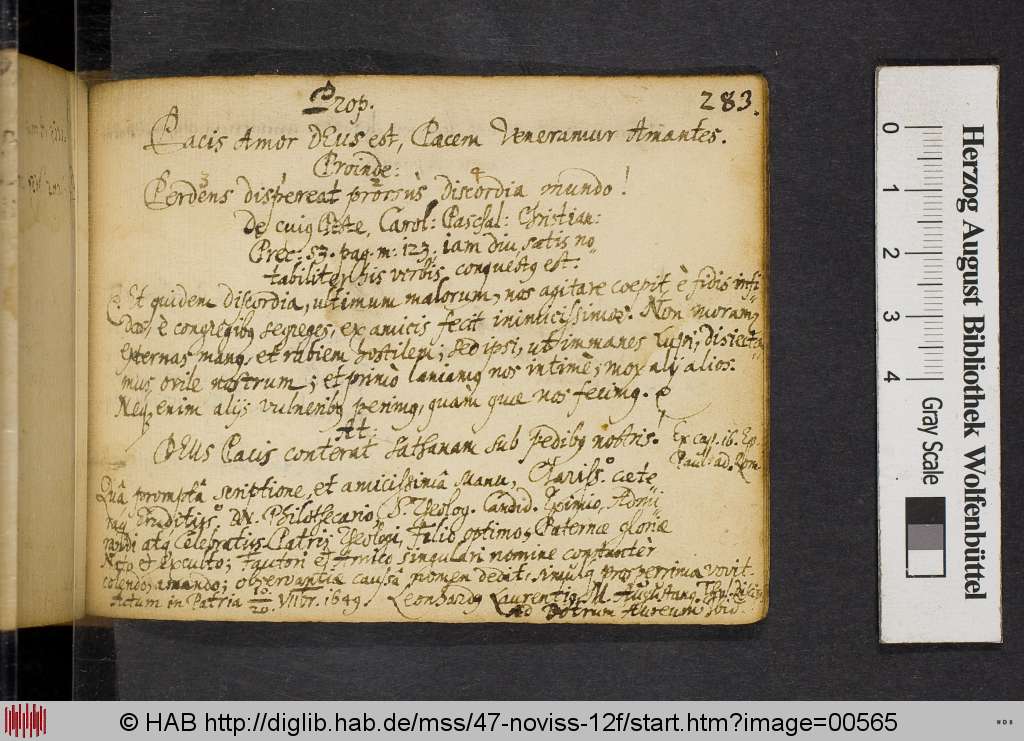 283.
Prop.
Pacis Amor DEUS est, Pacem Veneramur Amantes.
Proinde:
Perdens dispereat prorsùs discordia mundo!
De cuiq Peste, Carol: Paschal: Christian:
Prec: 53. pag. m: 123. iam diu satis no
tabiliter his verbis conquestq est.
Et quidem Discordia, ultimum malorum, nos agitare coepit è fidis infi
dos, è congregibq segreges, ex amicis fecit inimicissimos. Non moram,
externas manq, et rabiem hostilem; sed ipsi, ut immanes Lupi, disiecta
mus ovile nostrum; et primò laniamq nos intimè, mox alij alios.
Neq enim alijs vulneribq perimq, quàm quae nos fecimq.
At:
DEUS Pacis conterat Sathanam sub pedibq nostris! Ex cap. 16. Ep.
Paul: ad Rom
Quâ promptâ scriptione, et amicissimâ Manu, Clariss.o caete
Eruditiss.o DN. Philothecario, S. Theolog. Candid. Eximio, Admi
randi atq Celebratiss. Patris Theologi, filio optimo, Paternae gloriae
Nato et exculto; Fautori et Amico singulari nomine constantèr
colendo, amando; observantiae causâ nomen dedit, singula prosperrima vovit.
Actum in Patria 10/20. VIIbr. 1649. Leonhardq Laurentiq M. Augustang
Ad Botrum Aureum ibid.
0
1
2
3
4
Gray Scale
Herzog August Bibliothek Wolfenbüttel
© HAB http://diglib.hab.de/mss/47-noviss-12f/start.htm?image=00565